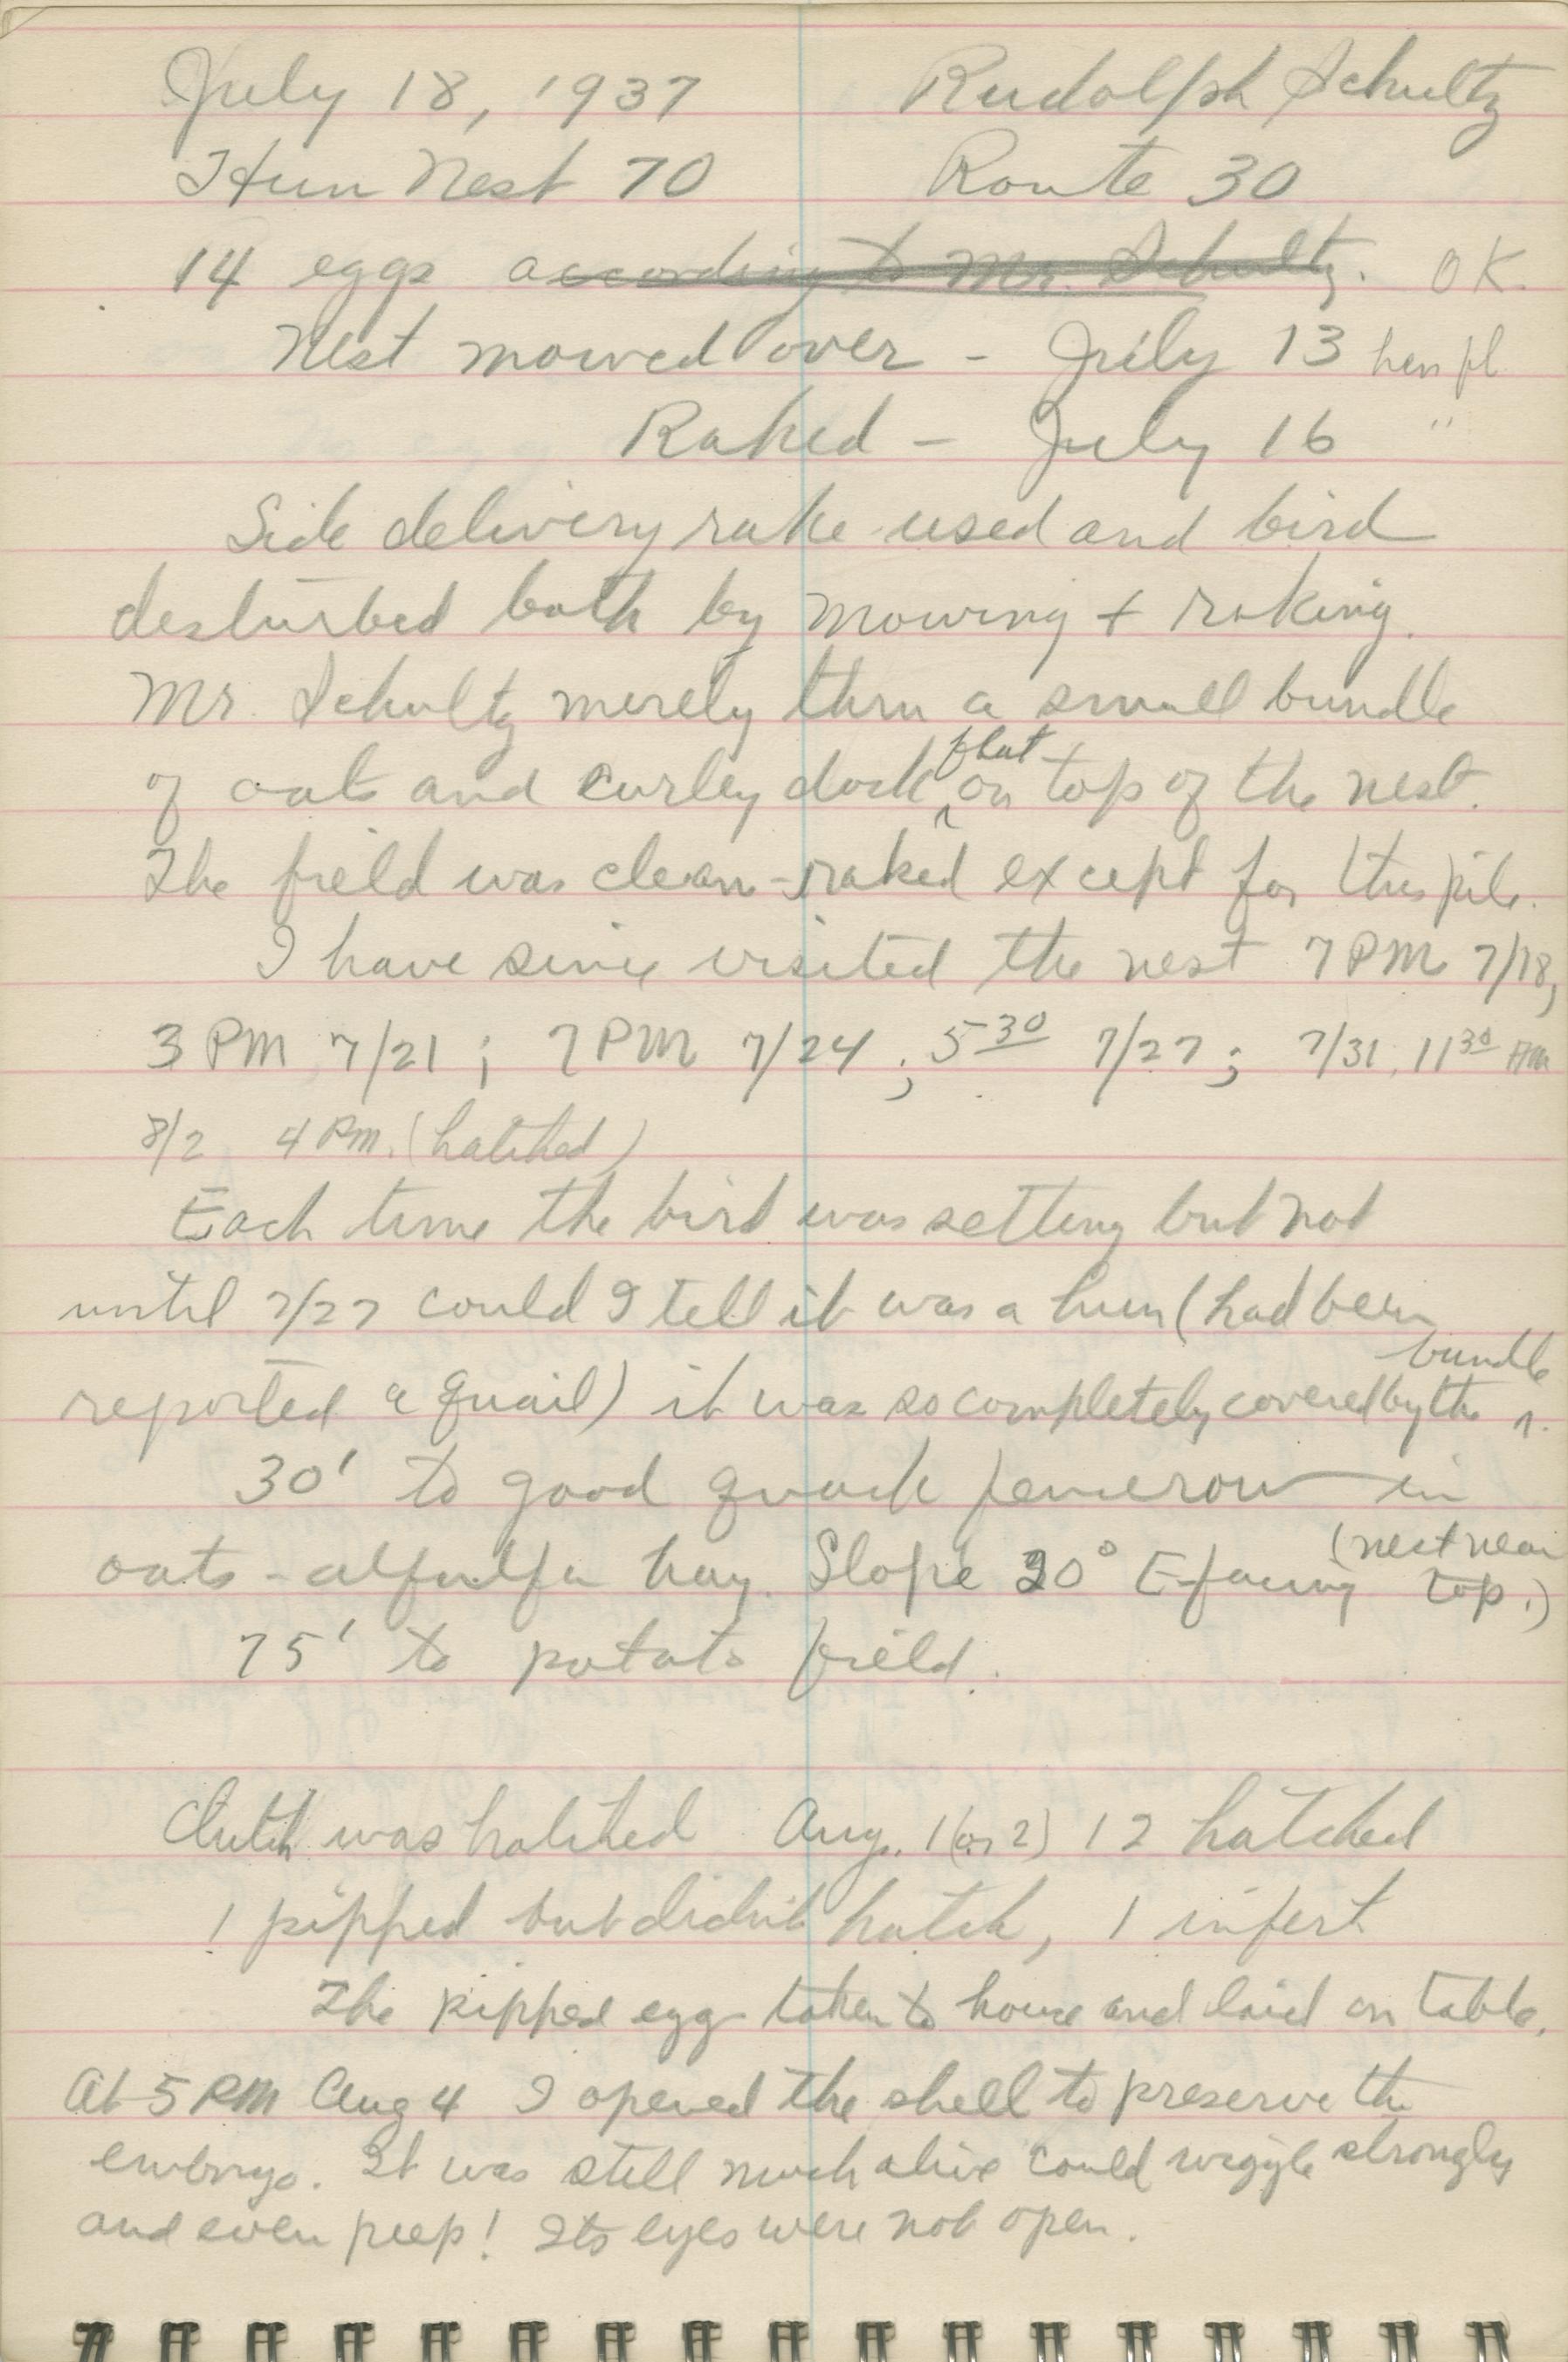 July 18, 1937 Rudolph Schultz
Hun Nest 70 Route 30
14 eggs according to Mr. Schultz. OK.
Nest mowed over - July 13 hen fl
Raked - July 16 "
Side delivery rake used and bird
desturbed both by mowing + raking.
Mr. Schultz merely thru a small bundle
of oats and curley dock flat on top of the nest.
The field was clean-raked except for this pile.
I have since visited the nest 7 PM 7/18,
3 PM 7/21; 7 PM 7/24; 5 30 7/27; 7/31, 11 30 AM
8/2 4 PM. (hatched)
Each time the bird was setting but not
until 7/27 could I tell it was a hun (had been
reported a quail) it was so completely covered by the bundle.
30' to good quack fencerow in
oats-alfalfa hay. Slope 20° E-facing (nest near top.)
75' to potato field.
Clutch was hatched Aug. 1 (or 2) 12 hatched
1 pipped but didn't hatch, 1 infert
The pipped egg taken to house and laid on table.
At 5 PM Aug 4 I opened the shell to preserve the
embryo. It was still much alive could wiggle strongly
and even peep! Its eyes were not open.